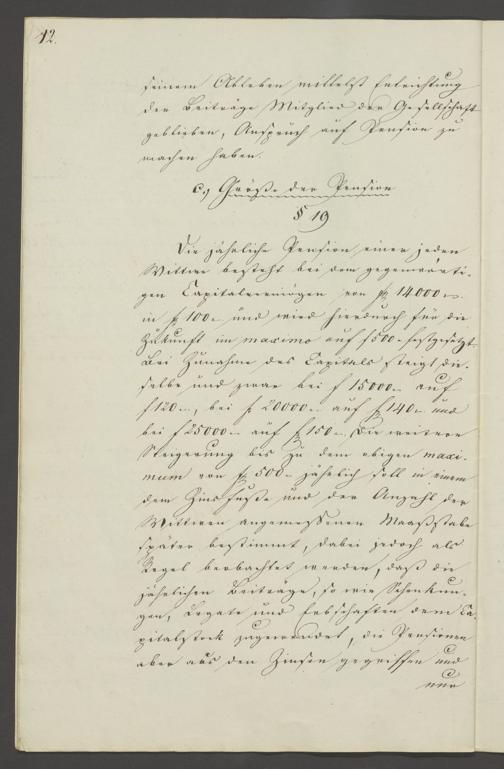 12.
seinem Ableben mittelst Entrichtung
der Beiträge Mitglied der Gesellschaft
geblieben, Anspruch auf Pension zu
machen haben.
c.) Größe der Pension
§ 19
Die jährliche Pension einer jeden
Wittwe besteht bei dem gegenwärti-
gen Capitalvermögen von 14000
in f 100 und wird hierdurch für die
Zukunft im maximo auf f 500 festgesetzt.
Bei Zunahme des Capitals steigt die-
selbe und zwar bei f 15000 auf
f 120, bei f 20000 auf f 140 und
bei f 25000 auf f 150. Die weitere
Steigerung bis zu dem obigen maxi-
mum von 500 jährlich soll in einem
dem Zinsfuße und der Anzahl der
Wittwen angemessenen Maaßstabe
später bestimmt, dabei jedoch als
Regel beobachtet werden, daß die
jährlichen Beiträge, so wie Schenkun-
gen, Legate und Erbschaften dem Ca-
pitalstock zugewendet, die Pensionen
aber aus den Zinsen gegriffen und
nur